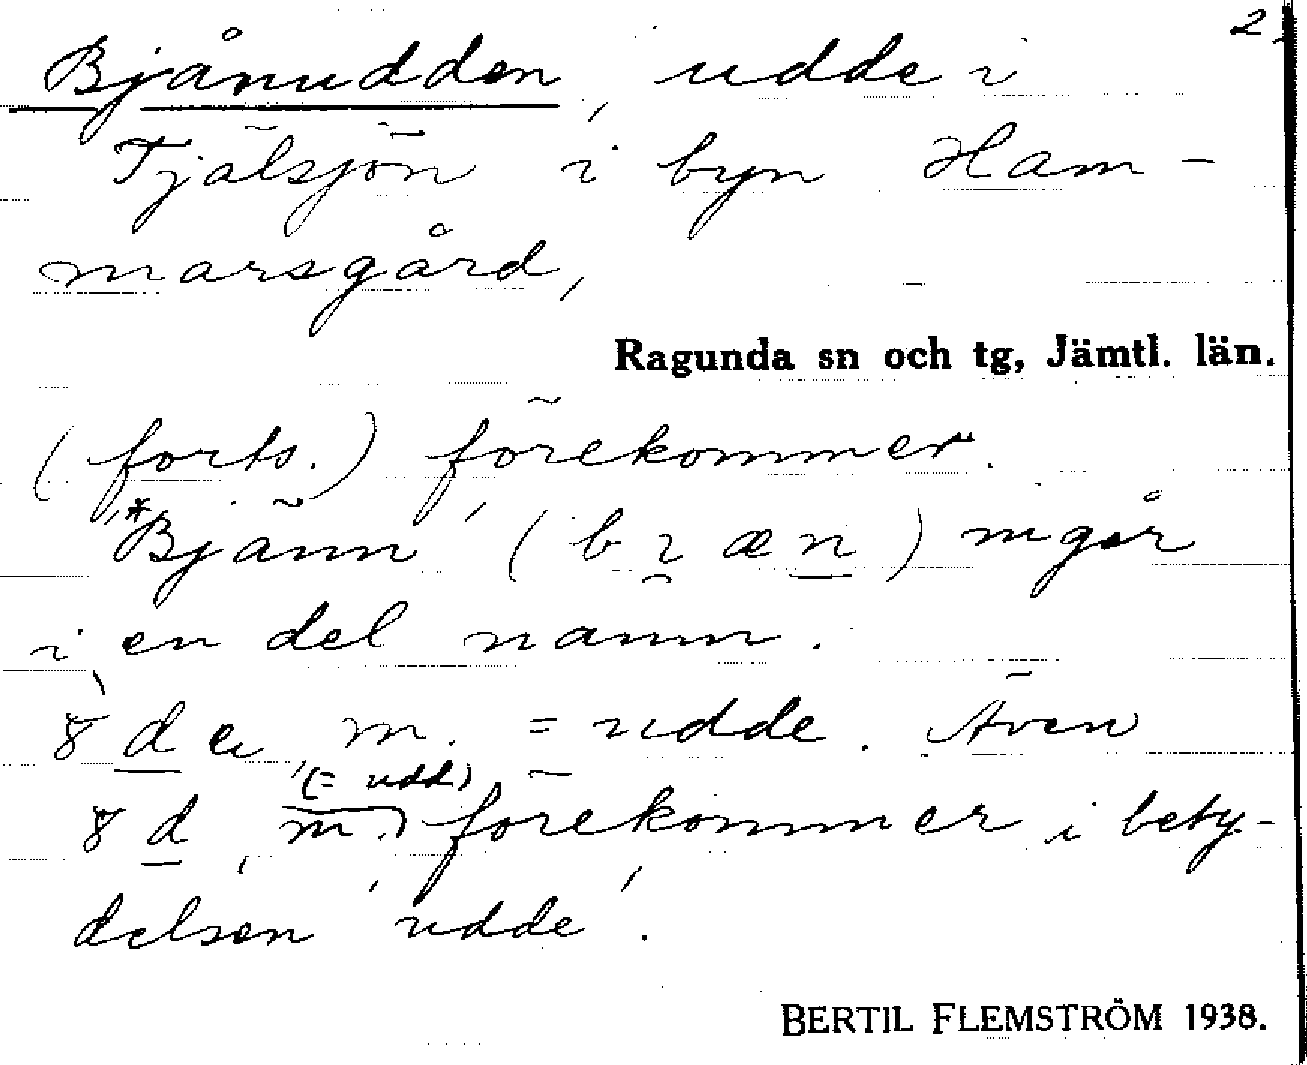 2.
Bjånudden, udde i
Tjälsjön i byn Ham-
marsgård,
Ragunda sn och tg, Jämtl. län.
(forts.) förekommer.
*Bjänn, (bi̯æn) ingår
i en del namn.
m. = udde. Även
(= udd)
m.) förekommer i bety-
delsen 'udde'.
BERTIL FLEMSTRÖM 1938.